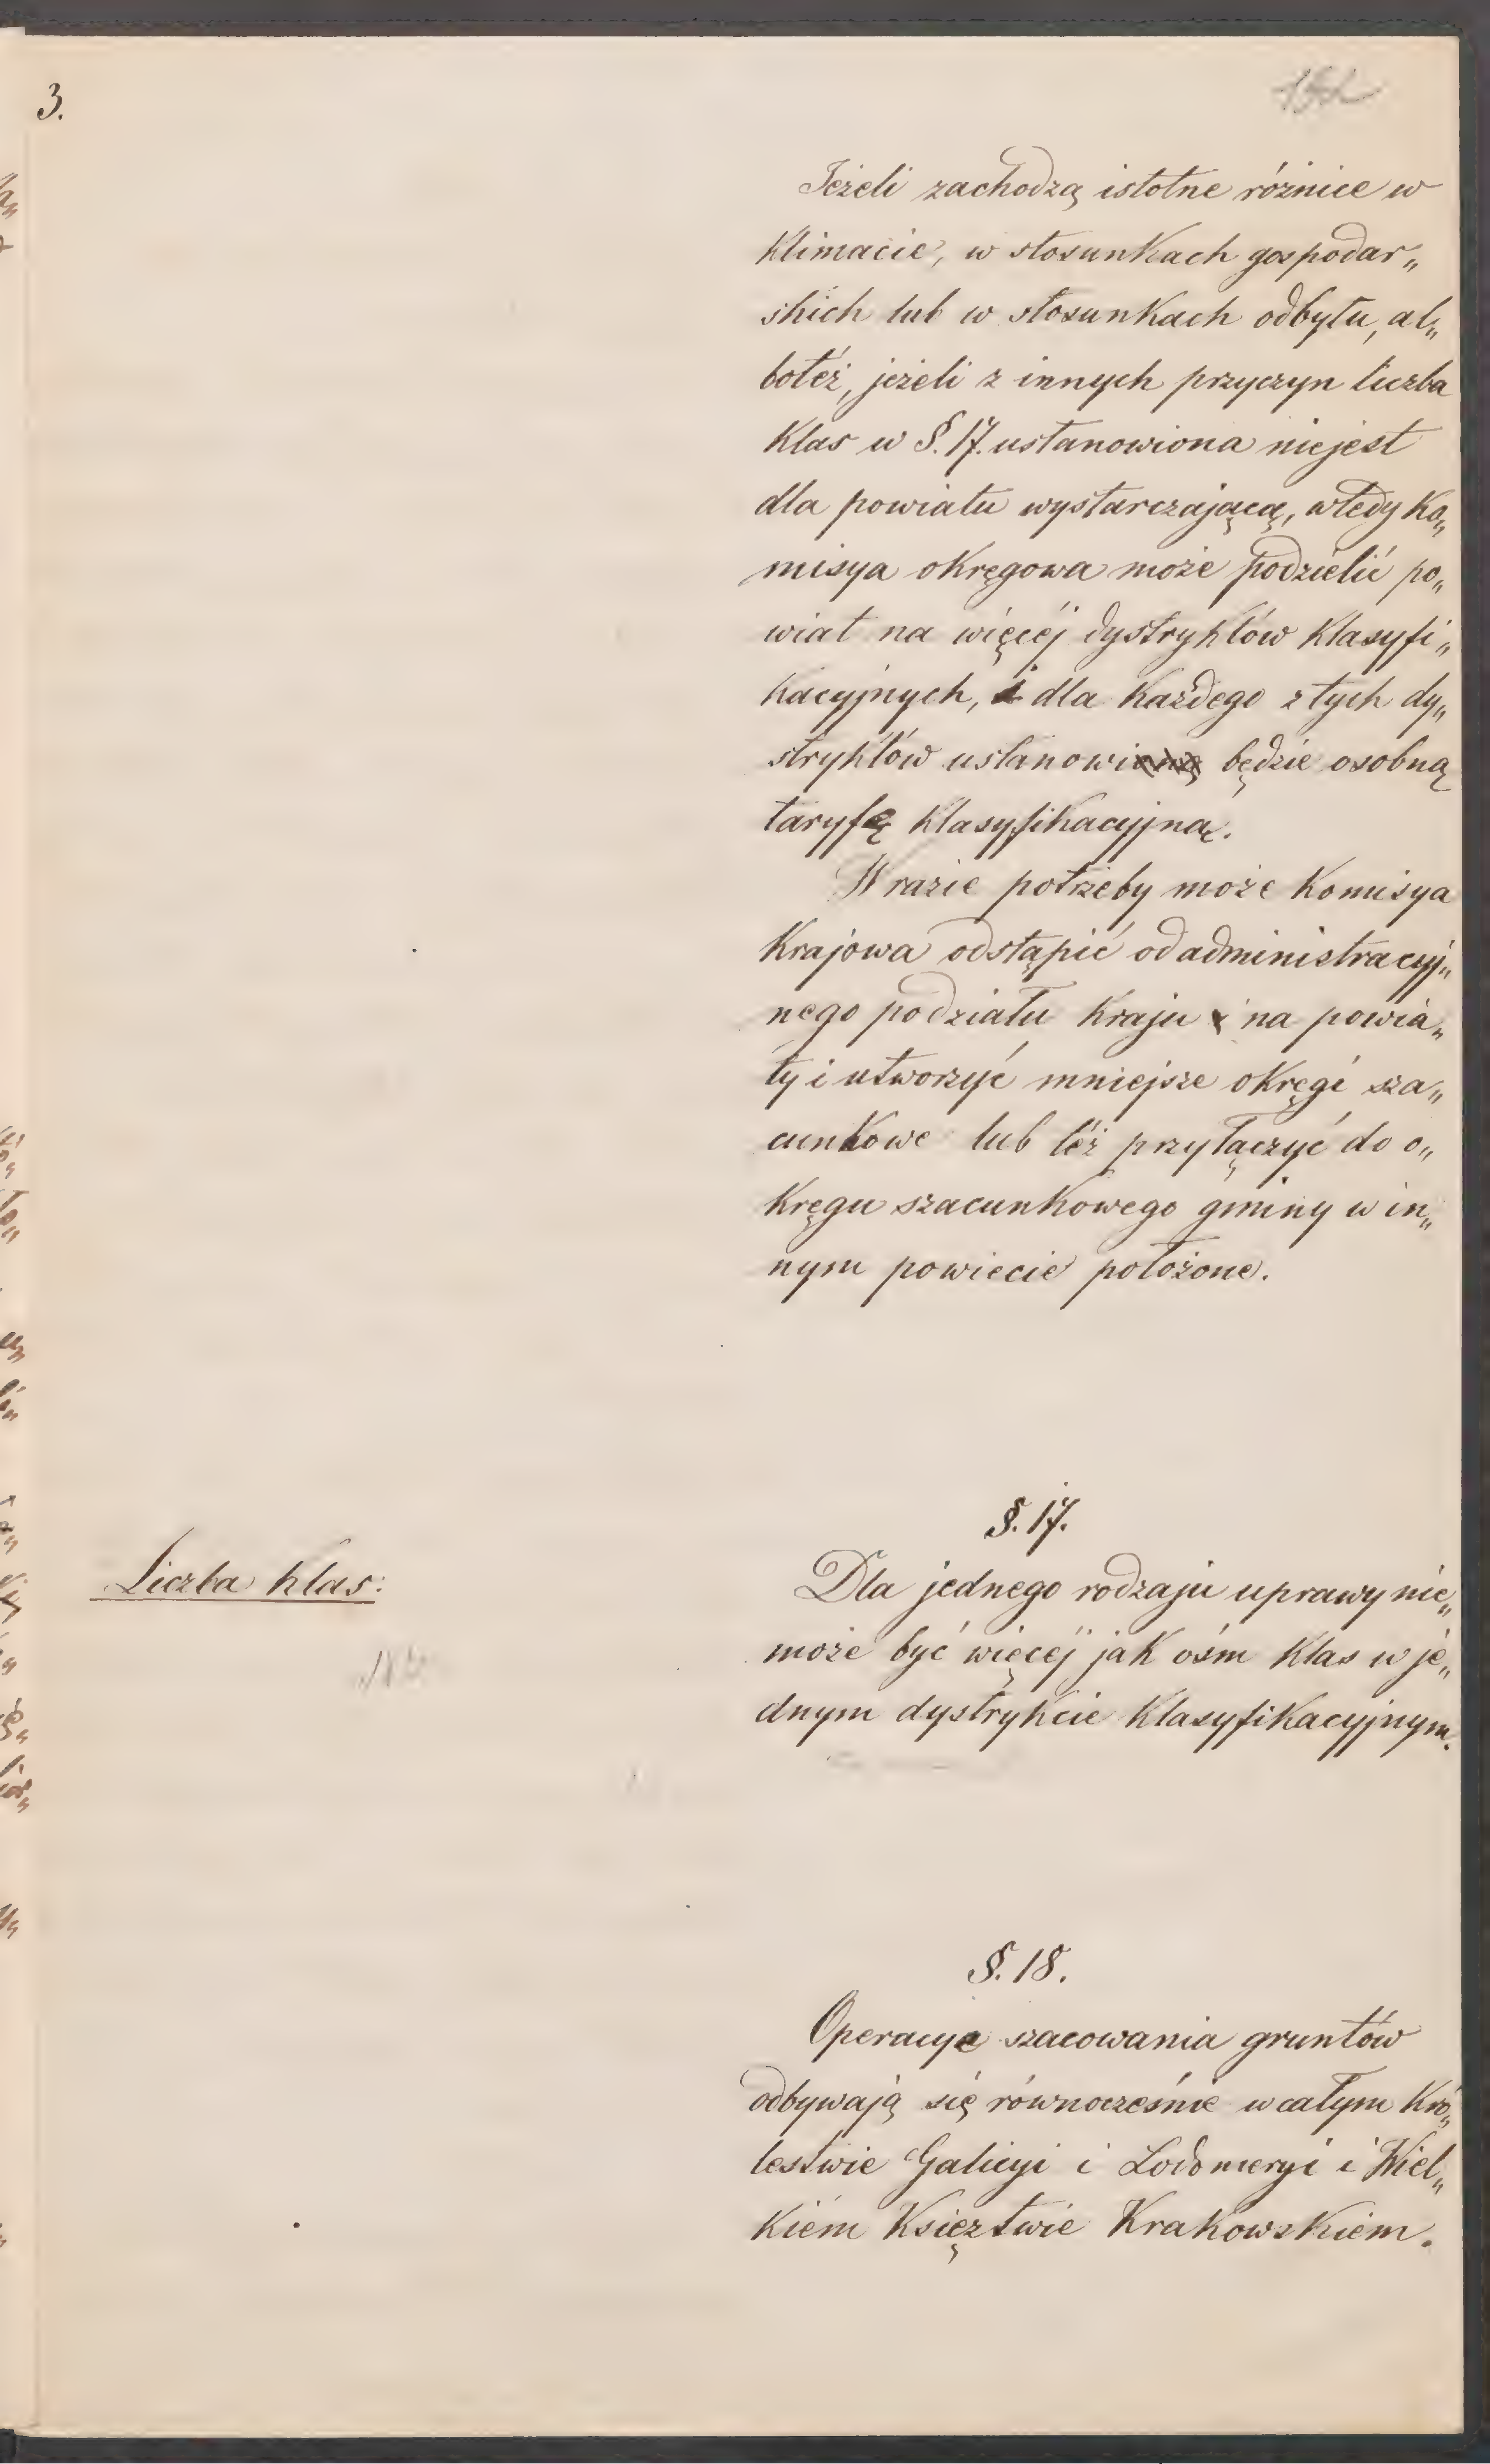 3.
Jeżeli zachodzą istotne różnice w
Klimacie, w stosunkach gospodar„
skich lub w stosunkach odbytu, al„
boteż, jeżeli z innych przyczyn liczba
Klas w §. 17. ustanowiona niejest
dla powiatu wystarczającą, wtedy Ko„
misya okręgowa może podzielić po„
wiat na więcéj dystryktów Klasyfi„
kacyjnych, i dla każdego z tych dy„
stryktów ustanowi będzie osobną
taryfę Klasyfikacyjną.
W razie potrzeby może Komisya
Krajowa odstąpić od administracyj„
nego podziału Kraju na powia„
ty i utworzyć mniejsze okręgi sza„
cunkowe lub téż przyłączyć do o„
Kręgu szacunkowego gminy w in„
nym powiecie położone.
§. 17.
Liczba klas:
Dla jednego rodzaju uprawy nie„
może być więcéj jak ośm Klas w je„
dnym dystrykcie Klasyfikacyjnym.
§. 18.
Operacye szacowania gruntów
odbywają się równocześnie w całym Kró„
lestwie Galicyi i Lodomeryi i Wiel„
kiém Księztwie Krakowskiem.